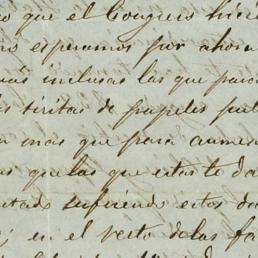 o que el Congreso hici
no esperamos por ahora
más inclusas las que para
tiritas de papeles pu
n mas que para aumen
as que las que estos le da
ntado sufriendo estos da
; en el resto de las fa